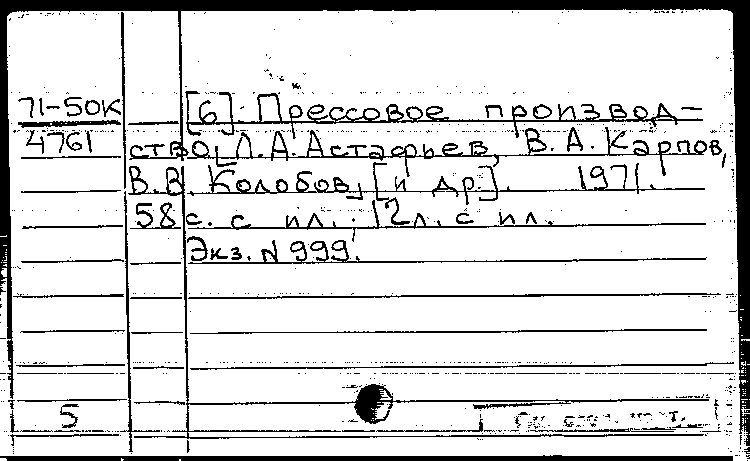 71-50к [6]. Прессовое производ-
4761 ство, [Л. А. Астафьев, В. А. Карпов,
В. В. Колобов] [и др.]. 1971.
58 с. с ил.; 12 л. с ил.
Экз. N 999.
5